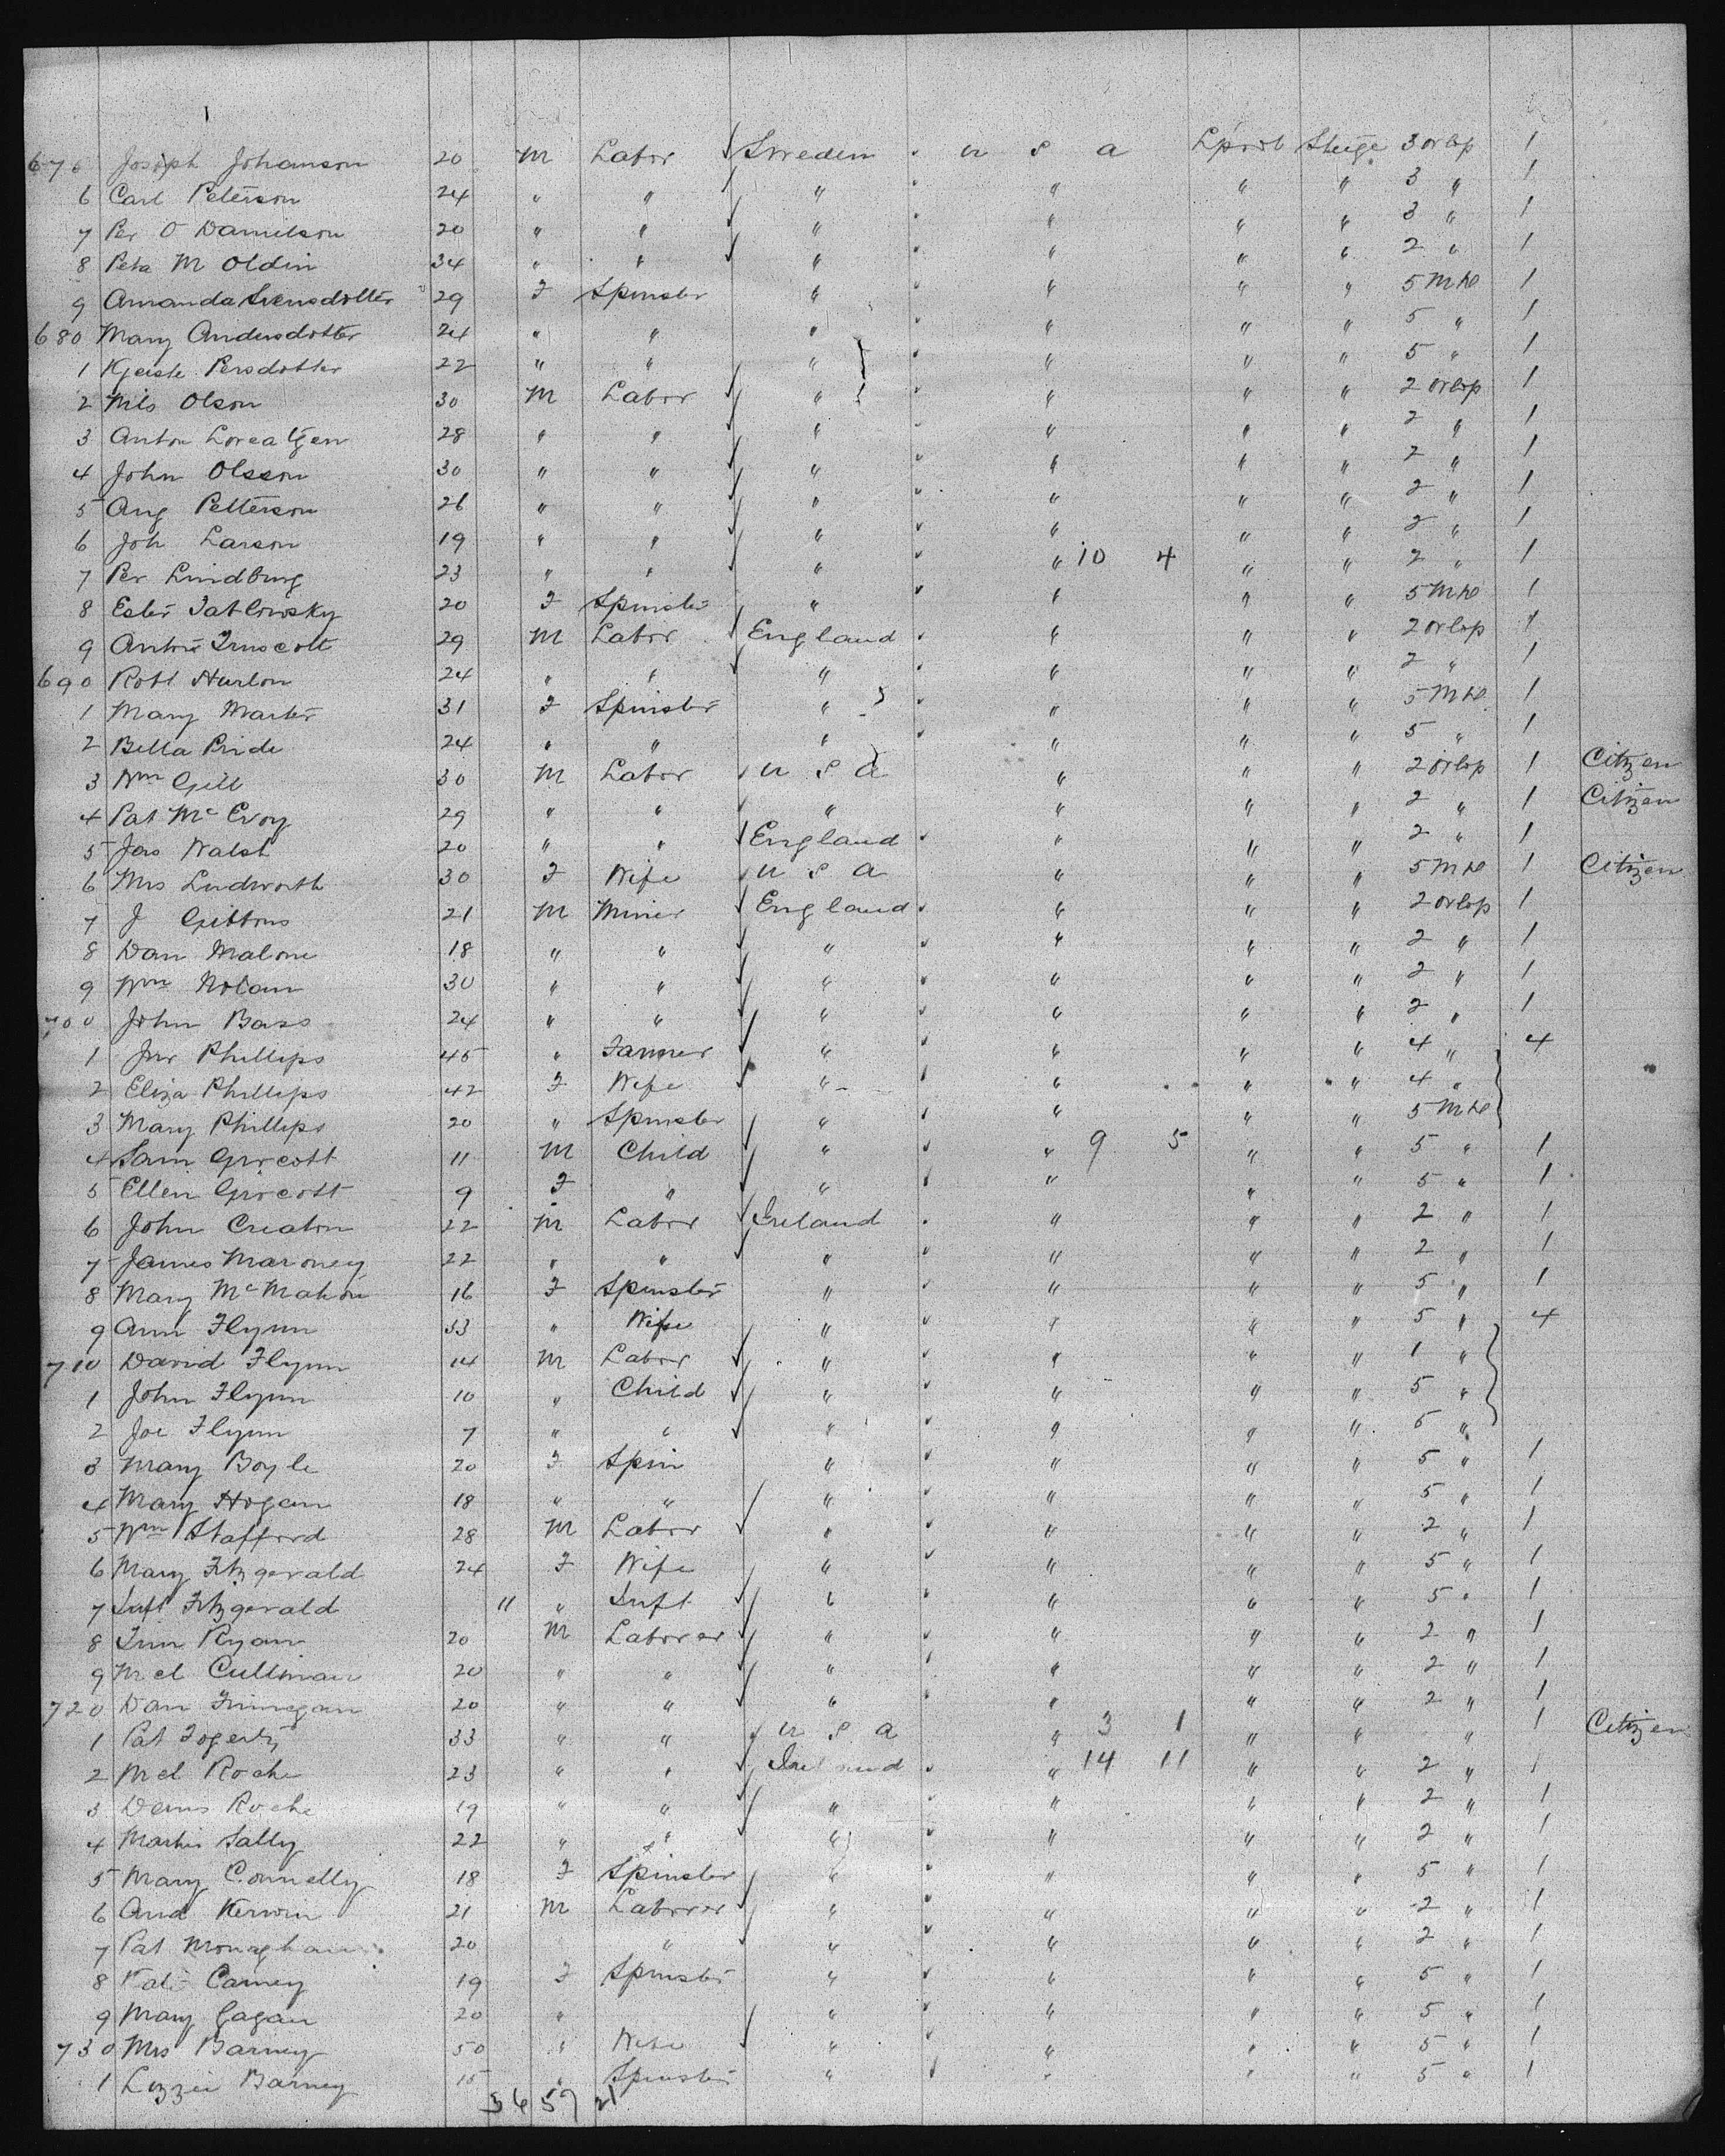 675 Joseph Johanson 20 M Labor Sweden U S A Lpool Steige 3 orlop 1
6 Carl Peterson 24 " " " " " " 3 " 1
7 Per O Danielson 20 " " " " " " 3 " 1
8 Peta M Oldin 34 " " " " " " 2 " 1
9 Amanda Svensdotter 29 F Spinster " " " " 5 Mn 1
680 Mary Andersdotter 24 " " " " " " 5 " 1
1 Persdotter 22 " " " " " " 5 " 1
2 Nils Olson 30 M Labor " " " " 2 orlop 1
3 Anton 28 " " " " " " 2 " 1
4 John Olsson 30 " " " " " " 2 " 1
5 Aug Petterson 26 " " " " " " 2 " 1
6 Joh Larson 19 " " " " " " 2 " 1
7 Per Lindburg 23 " " " " 10 4 " " 2 " 1
8 Ester Jablowsky 20 F Spinster " " " " 5 Mn 1
9 Truscott 29 M Labor England " " " 2 orlop 1
690 Robt Hurlon 24 " " " " " " 2 " 1
1 Mary Marter 31 F Spinster " " " " 5 Mn 1
2 Bella Pride 24 " " " " " " 5 " 1
3 Wm Gill 30 M Labor U S A " " " 2 orlop 1 Citizen
4 Pat McEvoy 29 " " " " " " 2 " 1 Citizen
5 Jas Walsh 20 " " England " " " 2 " 1
6 Mrs Ludworth 30 F Wife U S A " " " 5 Mn 1 Citizen
7 J Gibbons 21 M Miner England " " " 2 orlop 1
8 Dan Malone 18 " " " " " " 2 " 1
9 Wm Nolan 30 " " " " " " 2 " 1
700 John Bass 24 " " " " " " 2 " 1
1 Jno Phillips 45 " Farmer " " " " 4 " 4
2 Eliza Phillips 42 F Wife " " " " 4 "
3 Mary Phillips 20 " Spinster " " " " 5 Mn
4 Sam Grocott 11 M Child " " 9 5 " " 5 " 1
5 Ellen Grocott 9 F " " " " " 5 " 1
6 John Creaton 22 M Labor Ireland " " " 2 " 1
7 James Maroney 22 " " " " " " 2 " 1
8 Mary McMahon 16 F Spinster " " " " 5 " 1
9 Ann Flynn 33 " Wife " " " " 5 " 4
710 David Flynn 14 M Labor " " " " 1 "
1 John Flynn 10 " Child " " " " 5 "
2 Joe Flynn 7 " " " " " " 5 "
3 Mary Boyle 20 F Spin " " " " 5 " 1
4 Mary Hogan 18 " " " " " " 5 " 1
5 Wm Stafford 28 M Labor " " " " 2 " 1
6 Mary Fitzgerald 24 F Wife " " " " 5 " 1
7 Inft Fitzgerald 11 " Inft " " " " 5 " 1
8 Tim Ryan 20 M Laborer " " " " 2 " 1
9 Mcl Cullinan 20 " " " " " " 2 " 1
720 Dan Finnegan 20 " " " " " " 2 " 1
1 Pat Fogerty 33 " " U S A " 3 1 " " " 1 Citizen
2 Mcl Roche 23 " " Ireland " 14 11 " " 2 " 1
3 Denis Roche 19 " " " " " " 2 " 1
4 Martin Sally 22 " " " " " " 2 " 1
5 Mary Connelly 18 F Spinster " " " " 5 " 1
6 And Kerwin 21 M Laborer " " " " 2 " 1
7 Pat Monaghan 20 " " " " " 2 " 1
8 Kate Carney 19 F Spinster " " " " 5 " 1
9 Mary Gagan 20 " " " " " 5 " 1
730 Mrs Barney 50 " Wife " " " " 5 " 1
1 Lizzie Barney 15 " Spinster " " " " 5 " 1
36 57 21